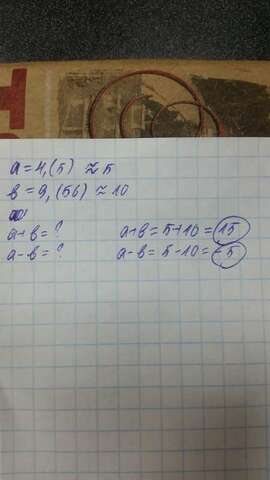 a = 4,(5) ≈ 5
b = 9,(56) ≈ 10
a+b = ? a+b = 5+10 = 15
a-b = ? a-b = 5-10 = -5